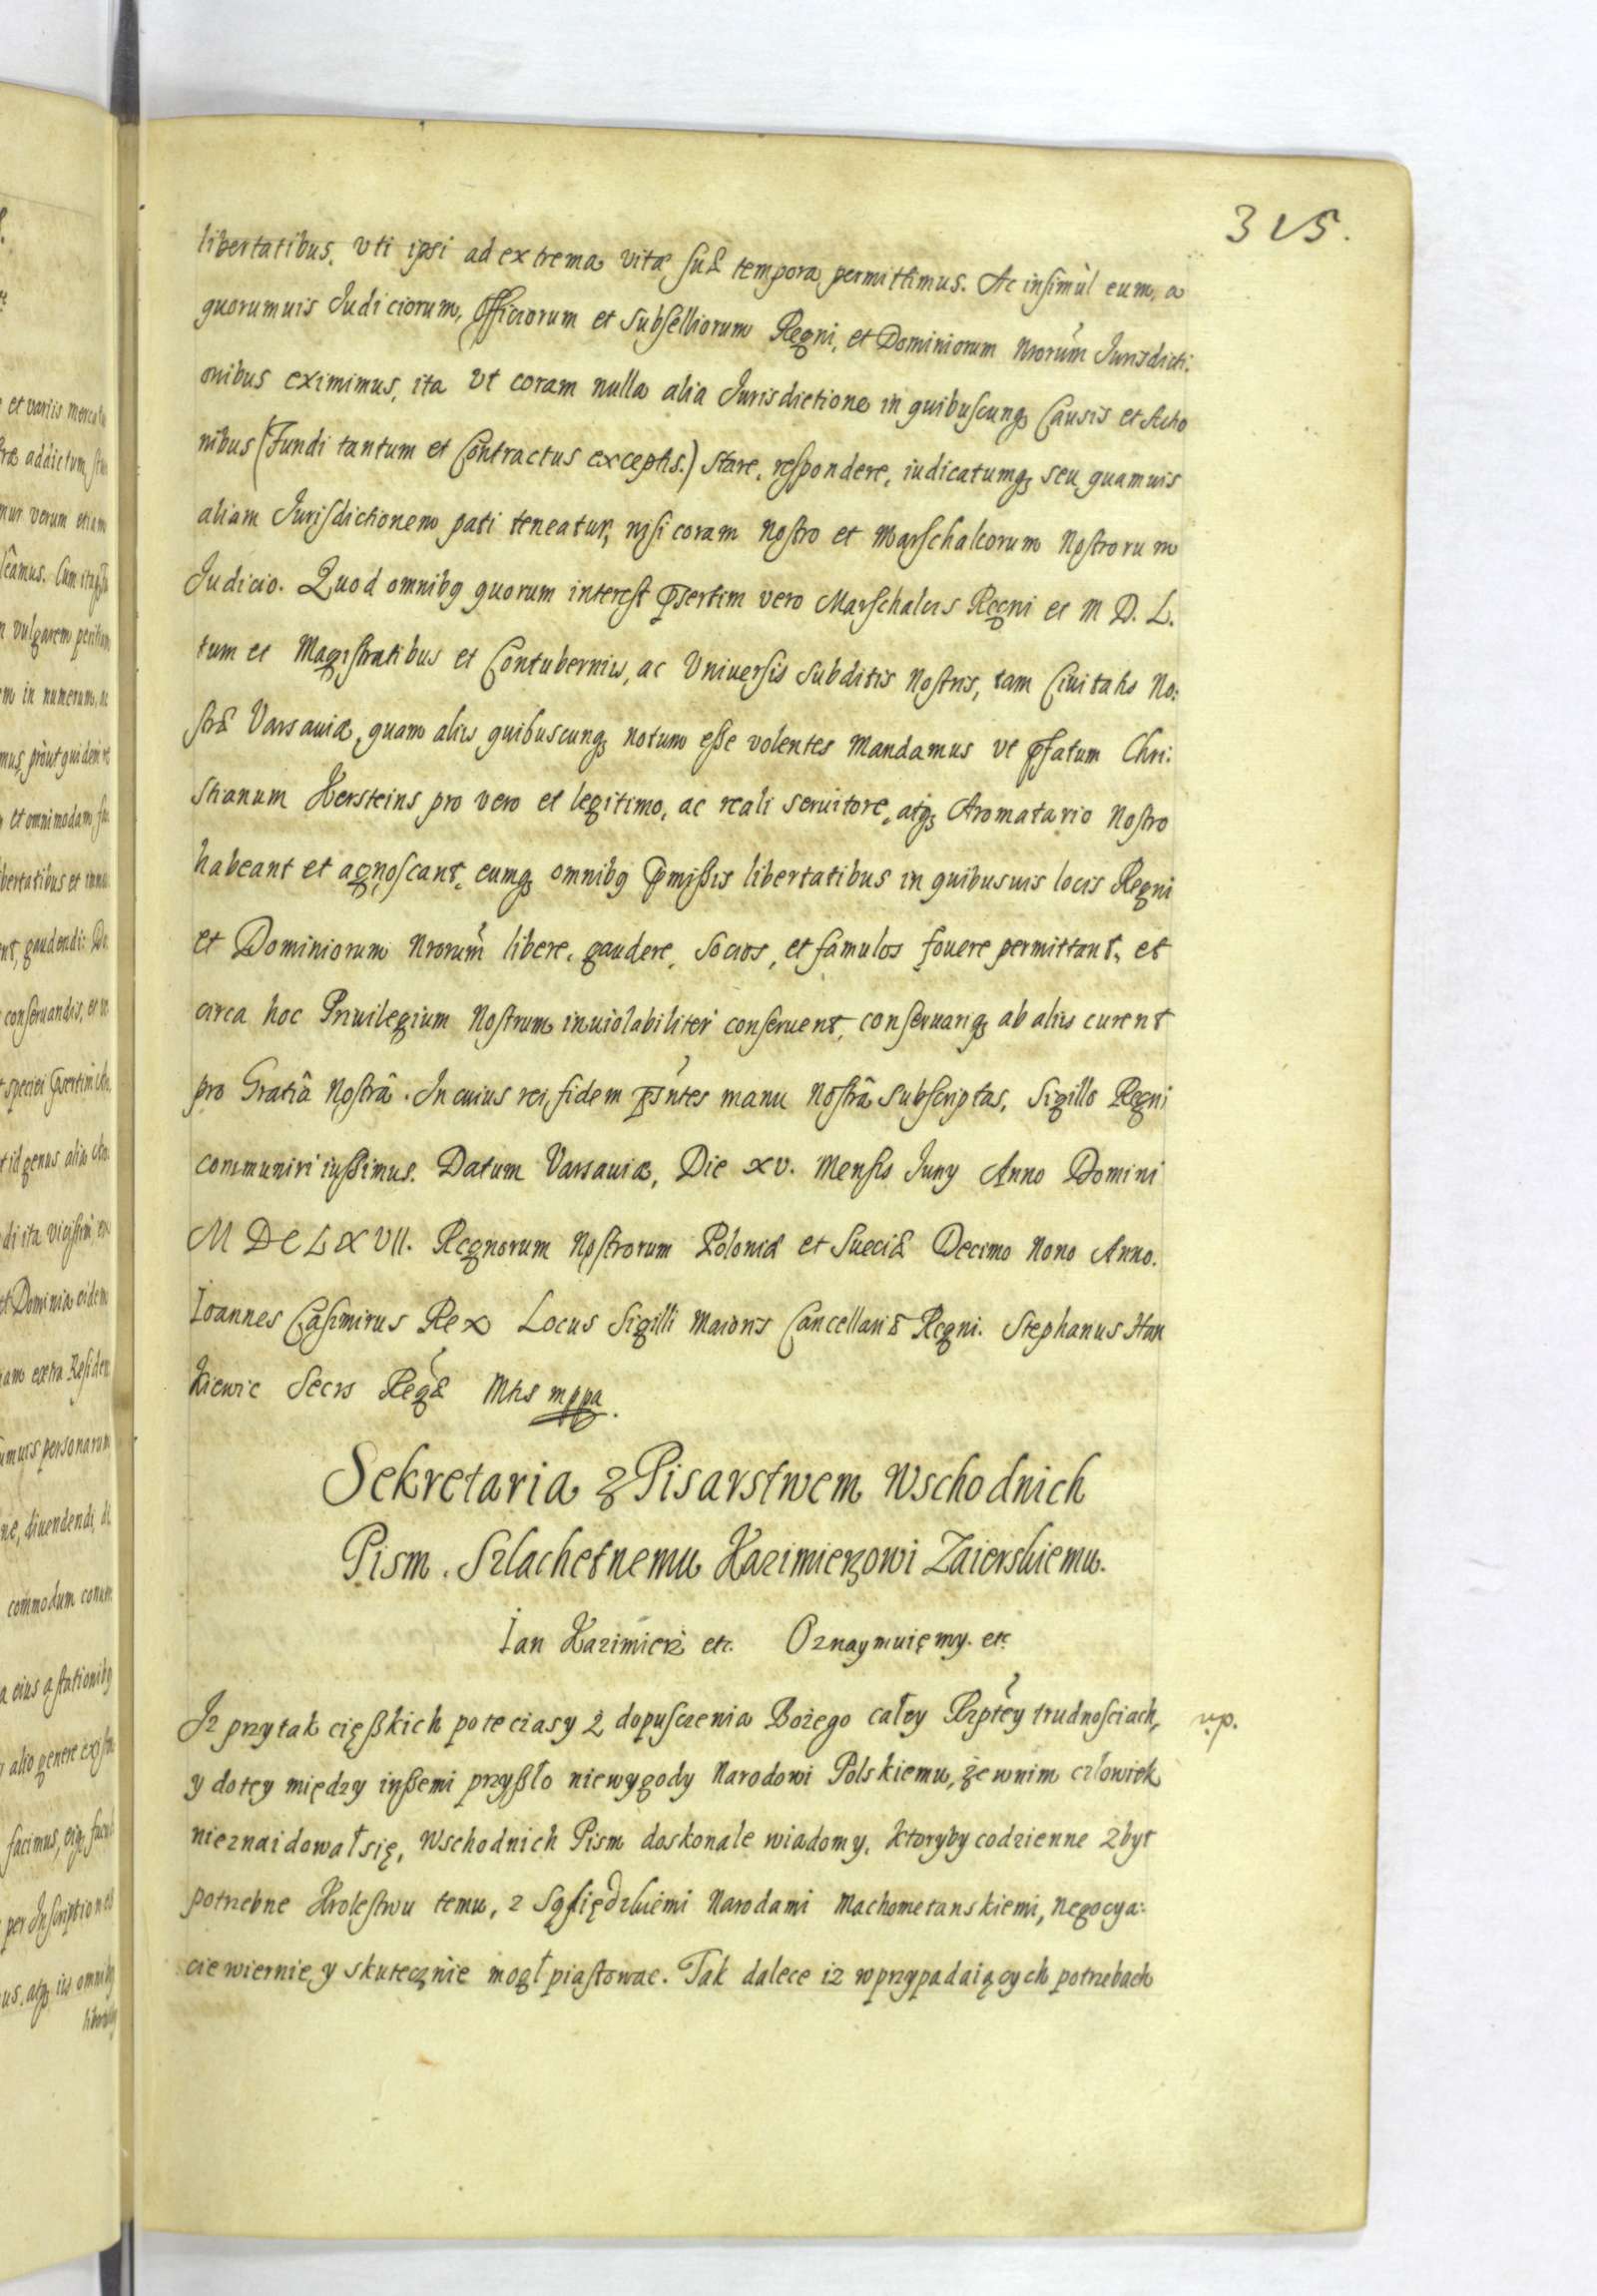 315.
libertatibus, vti ipsi ad extrema vitæ suæ tempora permittimus. Ac insimùl eum, a
quorumuis Judiciorum, Officiorum et Subselliorum Regni, et Dominiorum Nrorum Jurisdicti:
onibus eximimus, ita vt coram nulla alia Jurisdictione in quibuscunq Causis et Actio
nibus (Fundi tantum et Contractus exceptis.) stare, respondere, iudicatumq seu quamuis
aliam Jurisdictionem pati teneatur, nisi coram Nostro et Marschalcorum Nostrorum
Judicio. Quod omnibq quorum interest psertim vero Marschalcis Regni et M D. L.
tum et Magistratibus et Contubernijs, ac Vniuersis Subditis Nostris, tam Ciuitatis No:
stræ Varsauiæ, quam alijs quibuscunq notum eße volentes Mandamus vt pfatum Chri:
stianum Hersteins pro vero et legitimo, ac reali seruitore, atq Aromatario Nostro
habeant et agnoscant, eumq omnibq pmißis libertatibus in quibusuis locis Regni
et Dominiorum Nrorum libere, gaudere, socios, et famulos fouere permittant, et
circa hoc Priuilegium Nostrum inuiolabiliter conseruent, conseruariq ab alijs curent
pro Gratiâ Nostrâ. In cuius rei, fidem psntes manu Nostrâ subscriptas, Sigillo Regni
communiri iußimus. Datum Varsauiæ, Die xv. Mensis Juny Anno Domini
M DC LXVII. Regnorum Nostrorum Poloniæ et Sueciæ Decimo Nono Anno.
Ioannes Casimirus Rex Locus Sigilli Maioris Cancellariæ Regni. Stephanus Han
kiewic Secrs Regæ Mtis mppa.
Sekretaria z Pisarstwem Wschodnich
Pism. Szlachetnemu Kazimierzowi Zaierskiemu.
Ian Kazimierz etc. Oznaymuięmy. etc
Iz przy tak cięßkich po te czasy z dopusczenia Bożego całey Rzptey trudnosciach,
y do tey między inßemi przyßło niewygody Narodowi Polskiemu, że w nim człowiek
nieznaidował się, Wschodnich Pism doskonale wiadomy, ktoryby codzienne zbyt
potrzebne Krolestwu temu, z Sąsiędzkiemi Narodami Machometanskiemi, negocya:
cie wiernie y skutecznie mogł piastowac. Tak dalece iz w przypadaiących potrzebach